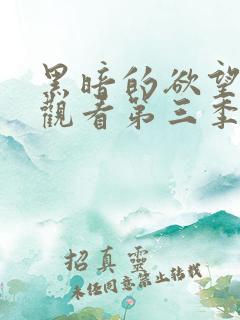 黑暗的欲望
觀看第三季
招真靈
未任同意禁止轉載